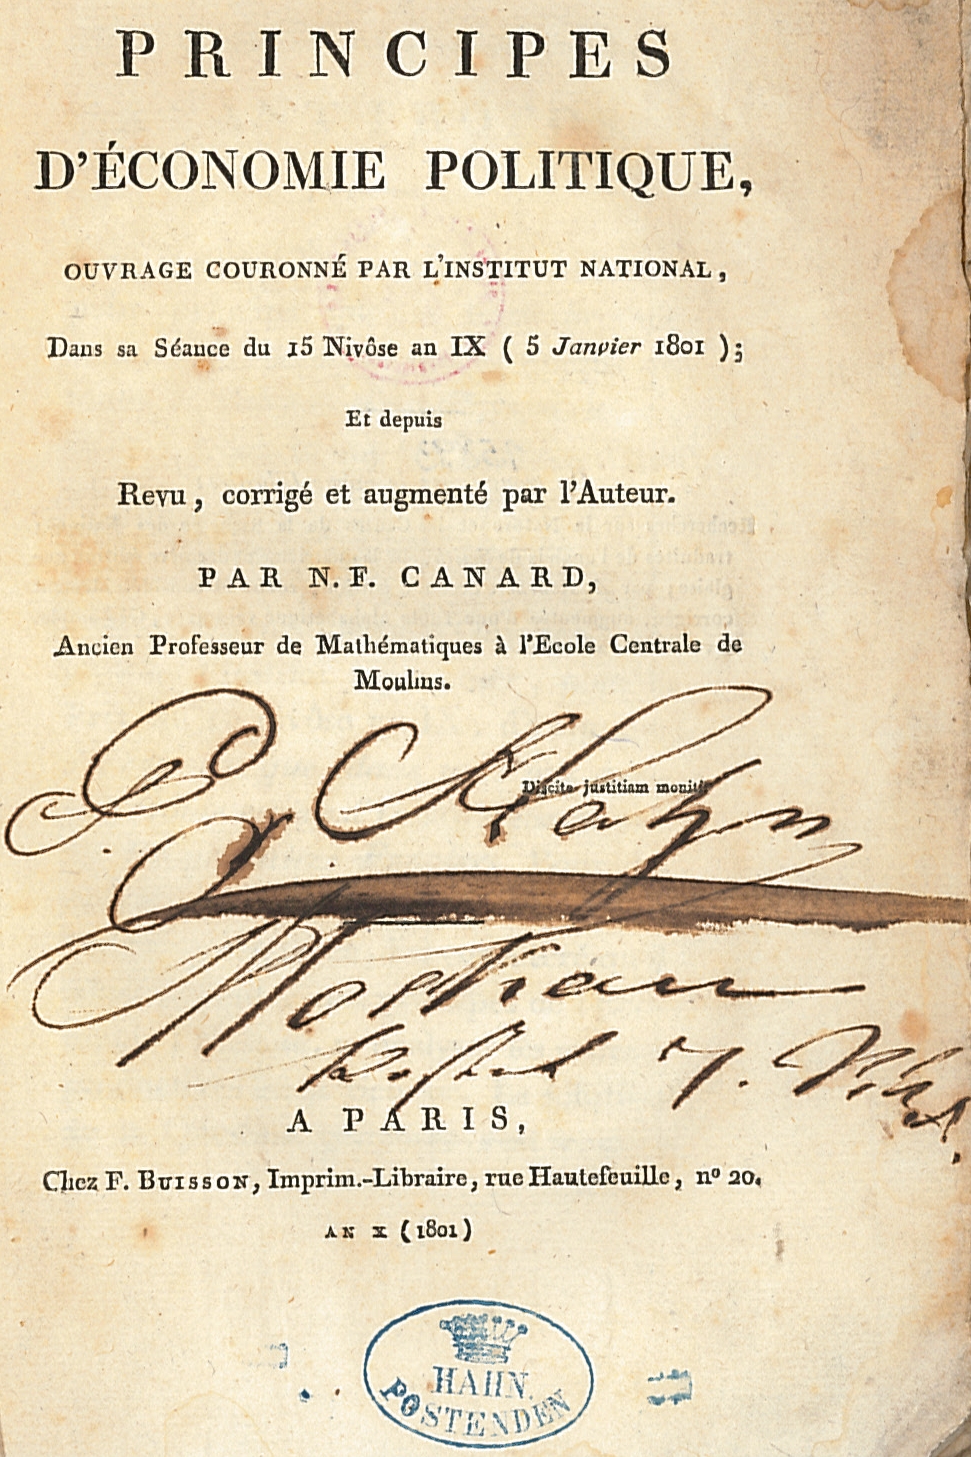 PRINCIPES
D'ÉCONOMIE POLITIQUE,
OUVRAGE COURONNÉ PAR L'INSTITUT NATIONAL,
Dans sa Séance du 15 Nivôse an IX ( 5 Janvier 1801 );
Et depuis
Revu, corrigé et augmenté par l'Auteur.
PAR N. F. CANARD,
Ancien Professeur de Mathématiques à l'Ecole Centrale de
Moulins.
Discite justitiam moniti
A PARIS,
Chez F. BUISSON, Imprim.-Libraire, rue Hautefeuille, nº 20.
AN X (1801)
HAHN.
POSTENDEN